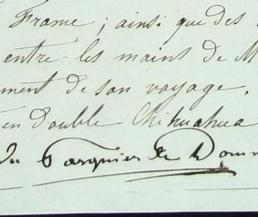 France ; ainsi que des
entre les mains de M
ment de son voyage.
en double Chihuahua
du Pasquier de Domm